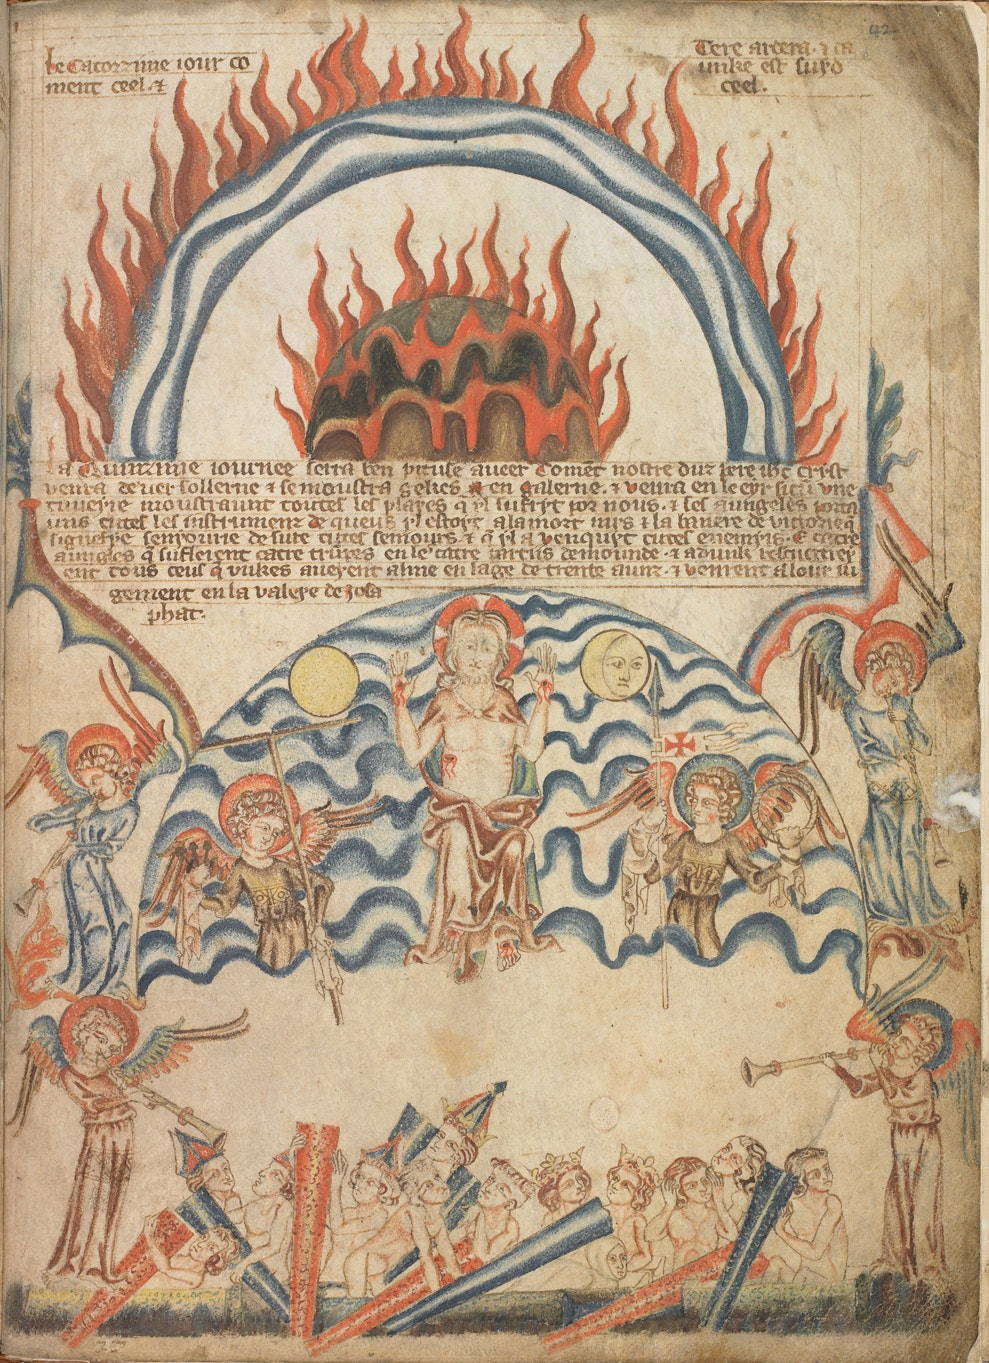 le Catorzime iour co
ment ceel. &
Tere ardera. & la
iunke est suyd
ceel.
42
La Quinzime iournee serra ben pituse aueer Coment nostre duz pere ihc cryst
vendra de ver sollerne & se moustra gelies & en galerne. & vendra en le eyr sicu une
nueye moustraunt toutes les playes q yl suffryt por nous. & les aungeles porta
uns tutes les instrumenz de queus yl estoyt a la mort mis & la banere de victorie q
signefye senyourie de sure tutes seniours & q yl a venquyt tutes enemys. E catre
aungles q suffleient catre trupes en les catre parties de mounde. & adunk resusciterey
ent tous ceus q unkes aueyent alme en lage de trente aunz. & vendrent a lour iu
gement en la valeye de Josa
phat.